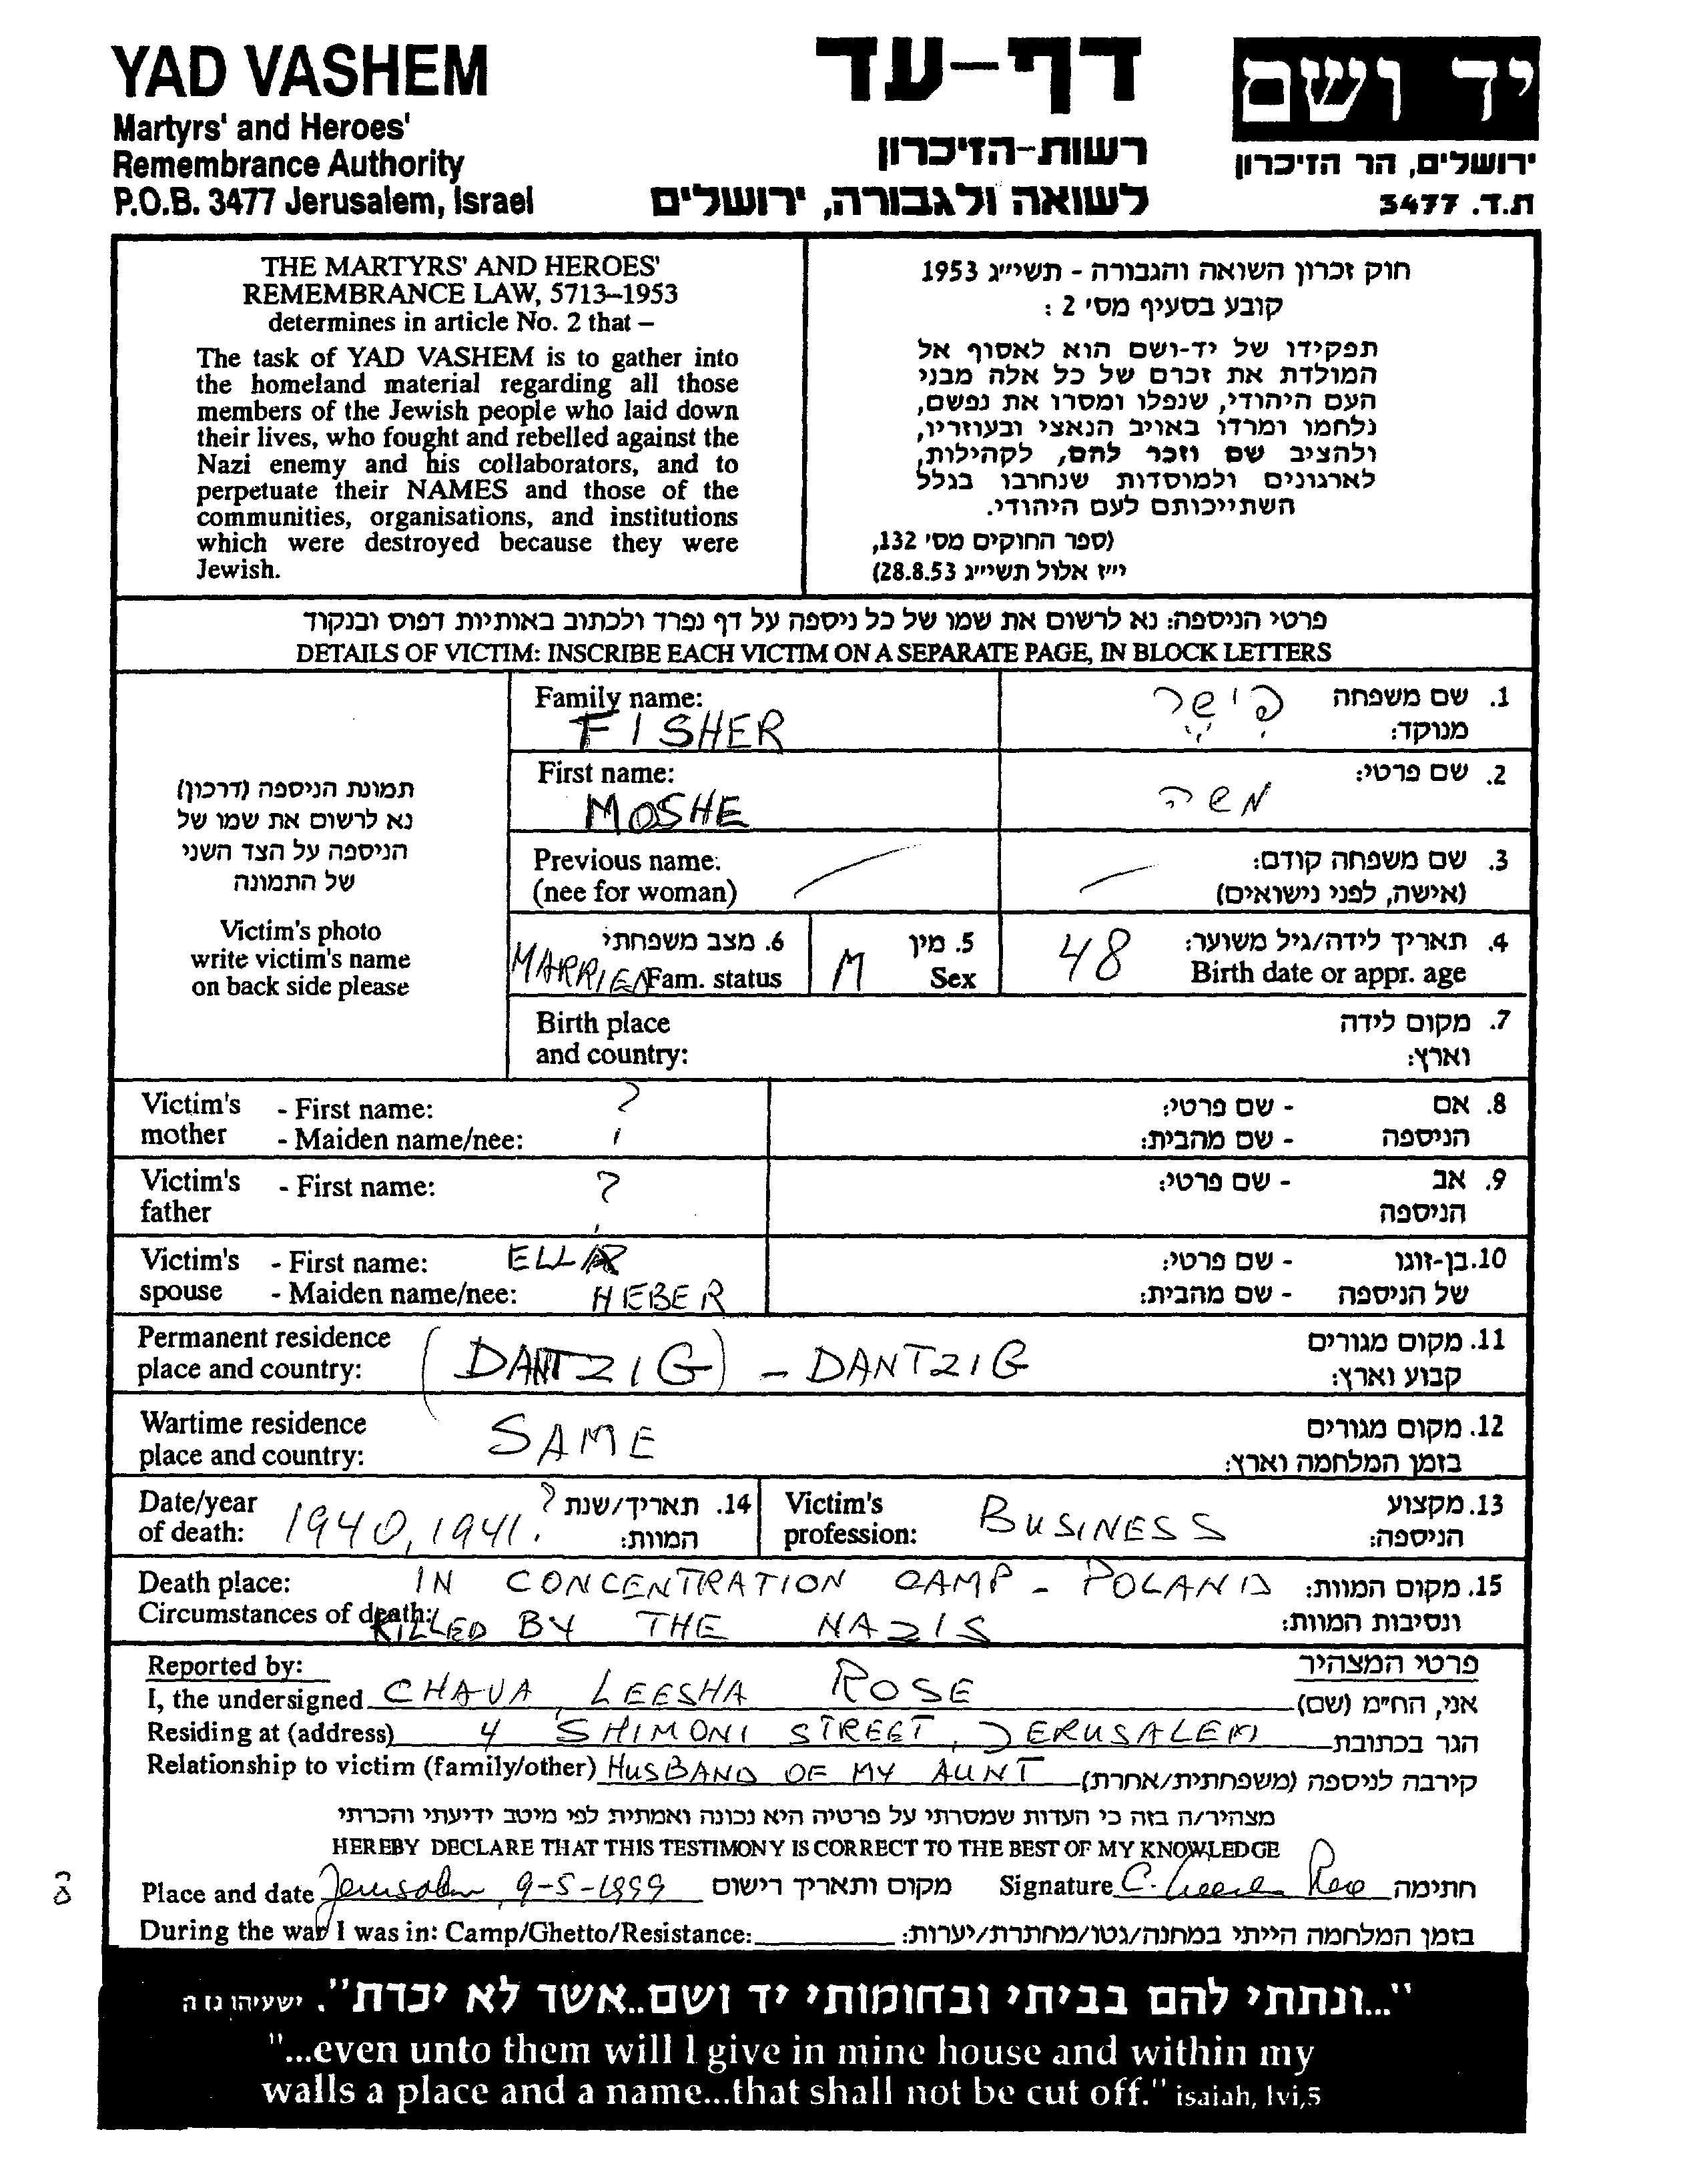 YAD VASHEM
Martyrs' and Heroes'
Remembrance Authority
P.O.B. 3477 Jerusalem, Israel
דף-עד
רשות-הזיכרון
לשואה ולגבורה, ירושלים
יד ושם
ירושלים, הר הזיכרון
ת.ד. 3477
THE MARTYRS' AND HEROES'
REMEMBRANCE LAW, 5713–1953
determines in article No. 2 that –
The task of YAD VASHEM is to gather into
the homeland material regarding all those
members of the Jewish people who laid down
their lives, who fought and rebelled against the
Nazi enemy and his collaborators, and to
perpetuate their NAMES and those of the
communities, organisations, and institutions
which were destroyed because they were
Jewish.
חוק זכרון השואה והגבורה - תשי״ג 1953
קובע בסעיף מס' 2 :
תפקידו של יד-ושם הוא לאסוף אל
המולדת את זכרם של כל אלה מבני
העם היהודי, שנפלו ומסרו את נפשם,
נלחמו ומרדו באויב הנאצי ובעוזריו,
ולהציב שם וזכר להם, לקהילות,
לארגונים ולמוסדות שנחרבו בגלל
השתייכותם לעם היהודי.
(ספר החוקים מס' 132,
י״ז אלול תשי״ג 28.8.53)
פרטי הניספה: נא לרשום את שמו של כל ניספה על דף נפרד ולכתוב באותיות דפוס ובנקוד
DETAILS OF VICTIM: INSCRIBE EACH VICTIM ON A SEPARATE PAGE, IN BLOCK LETTERS
תמונת הניספה (דרכון)
נא לרשום את שמו של
הניספה על הצד השני
של התמונה
Victim's photo
write victim's name
on back side please
Family name: פישר 1. שם משפחה
FISHER מנוקד:
First name: 2. שם פרטי:
MOSHE משה
Previous name: 3. שם משפחה קודם:
(nee for woman) (אישה, לפני נישואים)
6. מצב משפחתי 5. מין 4. תאריך לידה/גיל משוער:
MARRIED Fam. status M Sex 48 Birth date or appr. age
Birth place 7. מקום לידה
and country: וארץ:
Victim's - First name: ? - שם פרטי: 8. אם
mother - Maiden name/nee: - שם מהבית: הניספה
Victim's - First name: ? - שם פרטי: 9. אב
father הניספה
Victim's - First name: ELLA - שם פרטי: 10. בן-זוגו
spouse - Maiden name/nee: HEBER - שם מהבית: של הניספה
Permanent residence 11. מקום מגורים
place and country: (DANTZIG) - DANTZIG קבוע וארץ:
Wartime residence 12. מקום מגורים
place and country: SAME בזמן המלחמה וארץ:
Date/year ? 14. תאריך/שנת Victim's 13. מקצוע
of death: 1940, 1941. המוות: profession: BUSINESS הניספה:
Death place: IN CONCENTRATION CAMP - POLAND 15. מקום המוות:
Circumstances of death: KILLED BY THE NAZIS ונסיבות המוות:
Reported by: פרטי המצהיר
I, the undersigned CHAVA LEESHA ROSE אני, הח״מ (שם)
Residing at (address) 4 SHIMONI STREET, JERUSALEM הגר בכתובת
Relationship to victim (family/other) HUSBAND OF MY AUNT קירבה לניספה (משפחתית/אחרת)
מצהיר/ה בזה כי העדות שמסרתי על פרטיה היא נכונה ואמתית לפי מיטב ידיעתי והכרתי
HEREBY DECLARE THAT THIS TESTIMONY IS CORRECT TO THE BEST OF MY KNOWLEDGE
Place and date Jerusalem, 9-5-1999 מקום ותאריך רישום Signature C. Leesha Rose חתימה
During the war I was in: Camp/Ghetto/Resistance: בזמן המלחמה הייתי במחנה/גטו/מחתרת/יערות:
"...ונתתי להם בביתי ובחומותי יד ושם..אשר לא יכרת". ישעיהו נו ה
"...even unto them will I give in mine house and within my
walls a place and a name...that shall not be cut off." isaiah, lvi,5